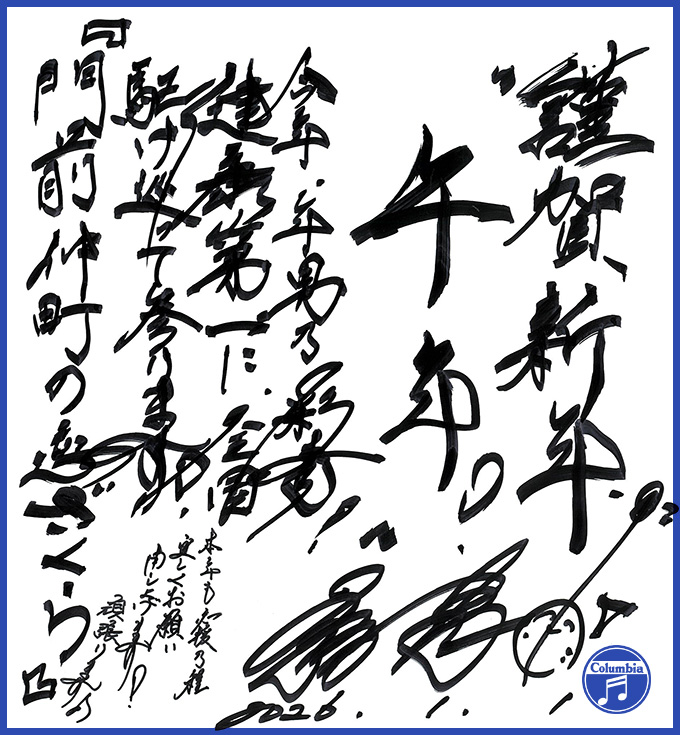 謹賀新年
午年
今年、年男の彩青!
健康第一に、全国
駆け巡って参ります!
『門前仲町の遅ざくら』
本年も応援の程
宜しくお願い
申し上げます!
頑張ります!
2026.1.1
Columbia